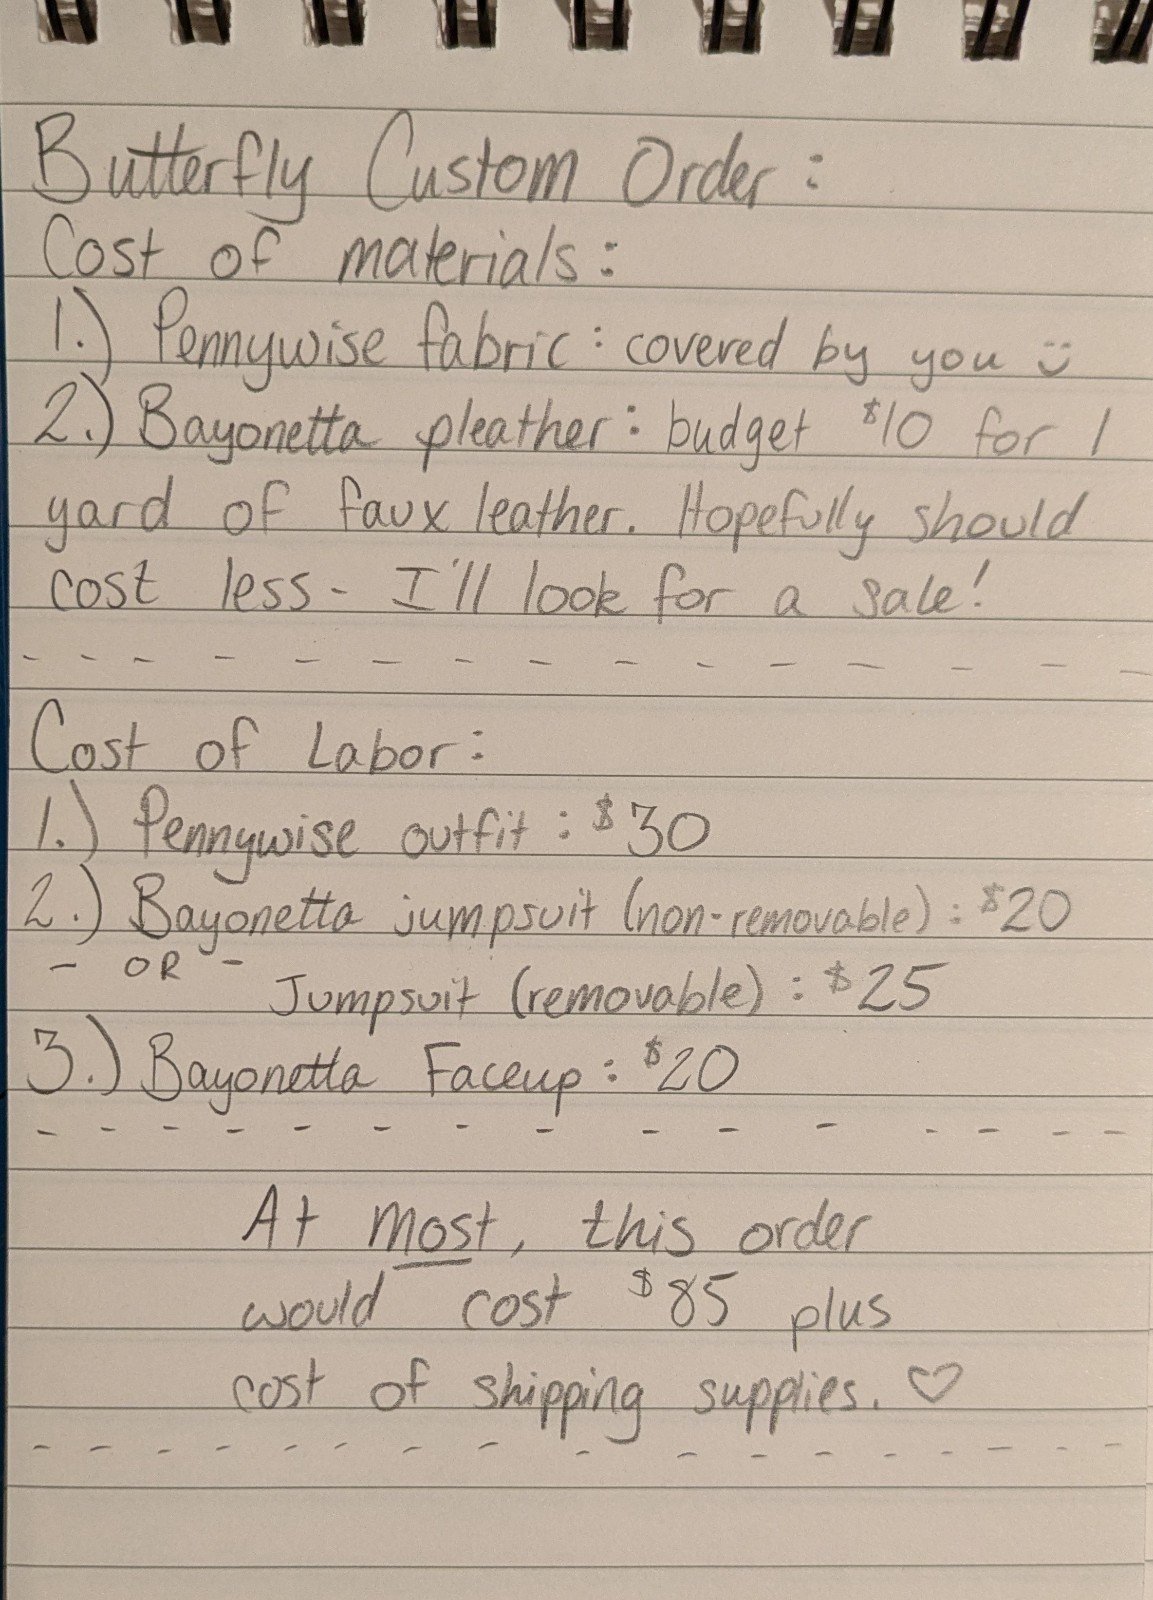 Butterfly Custom Order:
Cost of materials:
1.) Pennywise fabric: covered by you
2.) Bayonetta pleather: budget $10 for 1
yard of faux leather. Hopefully should
cost less - I'll look for a sale!
Cost of Labor:
1.) Pennywise outfit: $30
2.) Bayonetta jumpsuit (non-removable): $20
- OR -
Jumpsuit (removable): $25
3.) Bayonetta Faceup: $20
At most, this order
would cost $85 plus
cost of shipping supplies. ♡